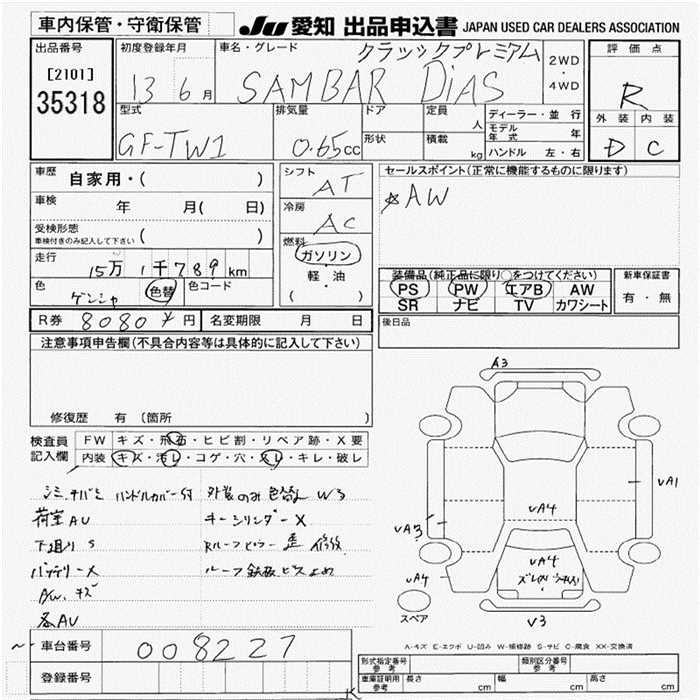 車内保管・守衛保管
JU 愛知 出品申込書 JAPAN USED CAR DEALERS ASSOCIATION
出品番号
[2101]
35318
初度登録年月
13 6 月
車名・グレード
クラシックプレミアム
SAMBAR DiAS
2WD
・
4WD
評価点
R
外装 内装
D C
型式
GF-TW1
排気量
0.65cc
ドア
形状
定員
人
積載
kg
ディーラー・並行
モデル年式 年
ハンドル 左・右
車歴 自家用・( )
車検 年 月( 日)
受検形態
車検付きのみ記入して下さい ( )
走行 15万 1千789km
色 ゲンシャ 色替 色コード
シフト AT
冷房 AC
燃料
ガソリン
軽・油
( )
セールスポイント(正常に機能するものに限ります)
☆AW
装備品(純正品に限り○をつけてください)
PS PW エアB AW
SR ナビ TV カワシート
新車保証書
有・無
R券 8080 ¥ 円 名変期限 月 日
後日品
注意事項申告欄(不具合内容等は具体的に記入して下さい)
修復歴 有 (箇所
検査員記入欄
FW キズ・飛石・ヒビ割・リペア跡・X要
内装 キズ・汚レ・コゲ・穴・スレ・キレ・破レ
シミ ハンドルカバー付 外装のみ色替え W3
荷室AU キーシリンダーX
下廻りS Rルーフピラー 歪 修復
バッテリーX ルーフ鉄板ビス止め
AW キズ
各AU
A3
UA1
UA4
UA3
UA4
UA4
ズレ
V3
スペア
A-キズ E-エクボ U-凹み W-補修跡 S-サビ C-腐食 XX-交換済
車台番号 008227
登録番号
型式指定番号
参考
類別区分番号
参考
車庫証明用
参考
長さ cm 幅 cm 高さ cm